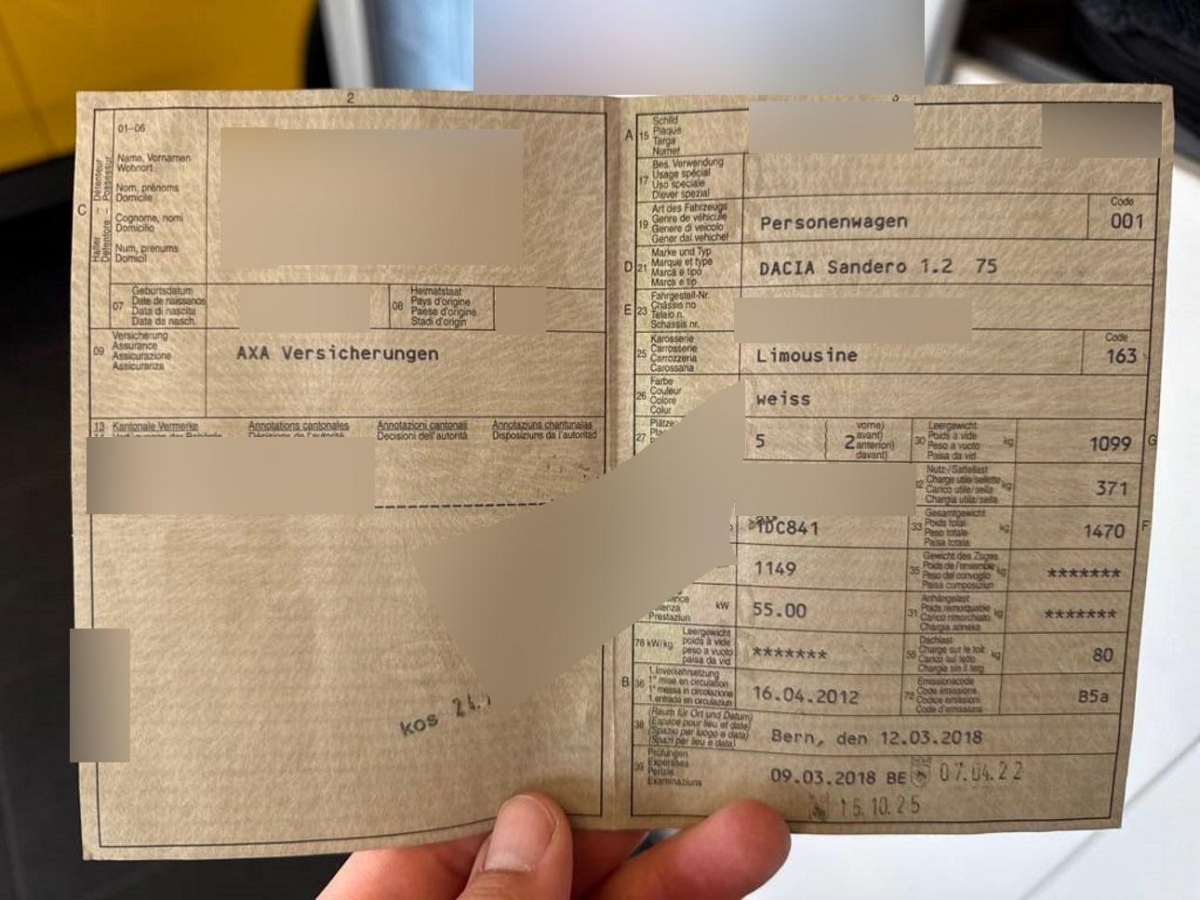 2
01–06
Name, Vornamen
Wohnort
Nom, prénoms
Domicile
Cognome, nomi
Domicilio
Num, prenums
Domicil
C
Halter – Détenteur
Detentore – Possessur
07
Geburtsdatum
Date de naissance
Data di nascita
Data da nasch.
08
Heimatstaat
Pays d'origine
Paese d'origine
Stadi d'origin
09
Versicherung
Assurance
Assicurazione
Assicuranza
AXA Versicherungen
13
Kantonale Vermerke
Annotations cantonales
Annotazioni cantonali
Annotaziuns chantunalas
Décisions de l'autorité
Decisioni dell'autorità
Disposiziuns da l'autoritad
kos
3
A 15
Schild
Plaque
Targa
Numer
17
Bes. Verwendung
Usage spécial
Uso speciale
Diever spezial
19
Art des Fahrzeugs
Genre de véhicule
Genere di veicolo
Gener dal vehichel
Personenwagen
Code
001
D 21
Marke und Typ
Marque et type
Marca e tipo
Marca e tip
DACIA Sandero 1.2 75
E 23
Fahrgestell-Nr.
Châssis no
Telaio n.
Schassis nr.
25
Karosserie
Carrosserie
Carrozzeria
Carossaria
Limousine
Code
163
26
Farbe
Couleur
Colore
Colur
weiss
27
Plätze
5
2
vorne)
avant)
anteriori)
davant)
30
Leergewicht
Poids à vide
Peso a vuoto
Paisa da vid
kg
1099
G
Nutz-/Sattellast
Charge utile/sellette
Carico utile/sella
Chargia utila/sella
kg
371
1DC841
33
Gesamtgewicht
Poids total
Peso totale
Paisa totala
kg
1470
F
1149
35
Gewicht des Zuges
Poids de l'ensemble
Peso del convoglio
Paisa cumposiziun
kg
*******
Prestaziun
kW
55.00
31
Anhängelast
Poids remorquable
Carico rimorchiato
Chargia annexa
kg
*******
76 kW/kg
Leergewicht
poids à vide
peso a vuoto
paisa da vid
*******
55
Dachlast
Charge sur le toit
Carico sul tetto
Chargia sin il tetg
kg
80
B 36
1. Inverkehrsetzung
1re mise en circulation
1a messa in circolazione
1. entrada en circulaziun
16.04.2012
72
Emissionscode
Code émissions
Codice emissioni
Code d'emissiuns
B5a
38
(Raum für Ort und Datum)
(Espace pour lieu et date)
(Spazio per luogo e data)
(Spazi per lieu e data)
Bern, den 12.03.2018
39
Prüfungen
Expertises
Perizie
Examinaziuns
09.03.2018 BE
07.04.22
15.10.25